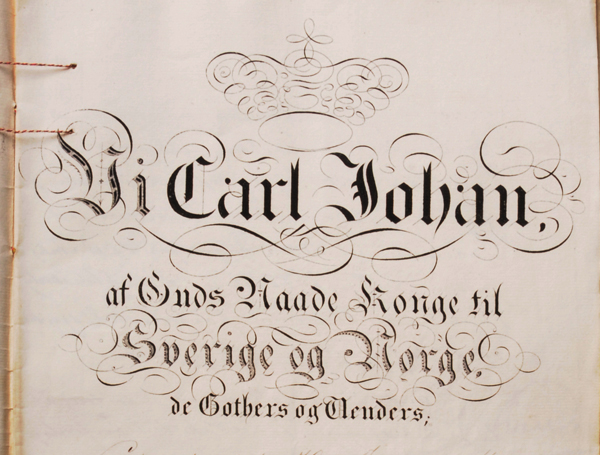 Vi Carl Johan,
af Guds Naade Konge til
Sverige og Norge,
de Gothers og Venders,